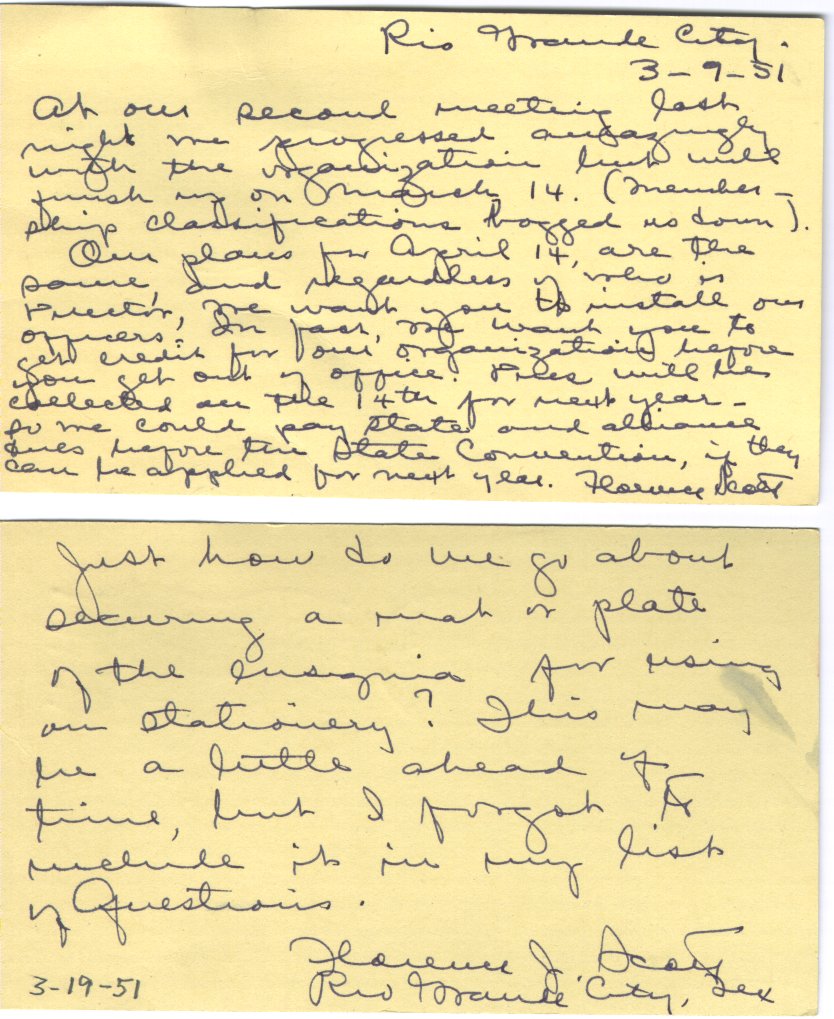 Rio Grande City.
3-9-51
At our second meeting last
night we progressed amazingly
with the organization but will
finish up on March 14. (Member-
ship classifications bogged us down).
Our plans for April 14, are the
same, and regardless of who is
, we want you to install our
officers, In fact, we want you to
get credit for our organization before
you get out of office. will be
collected on the 14th for next year -
so we could pay state and alliance
dues before the State Convention, if they
can be applied for next year. Florence Scott
Just how do we go about
securing a mat or plate
of the insignia for using
on stationery? This may
be a little ahead of
time, but I forgot to
include it in my list
of Questions.
Florence J. Scott
3-19-51 Rio Grande City, Tex